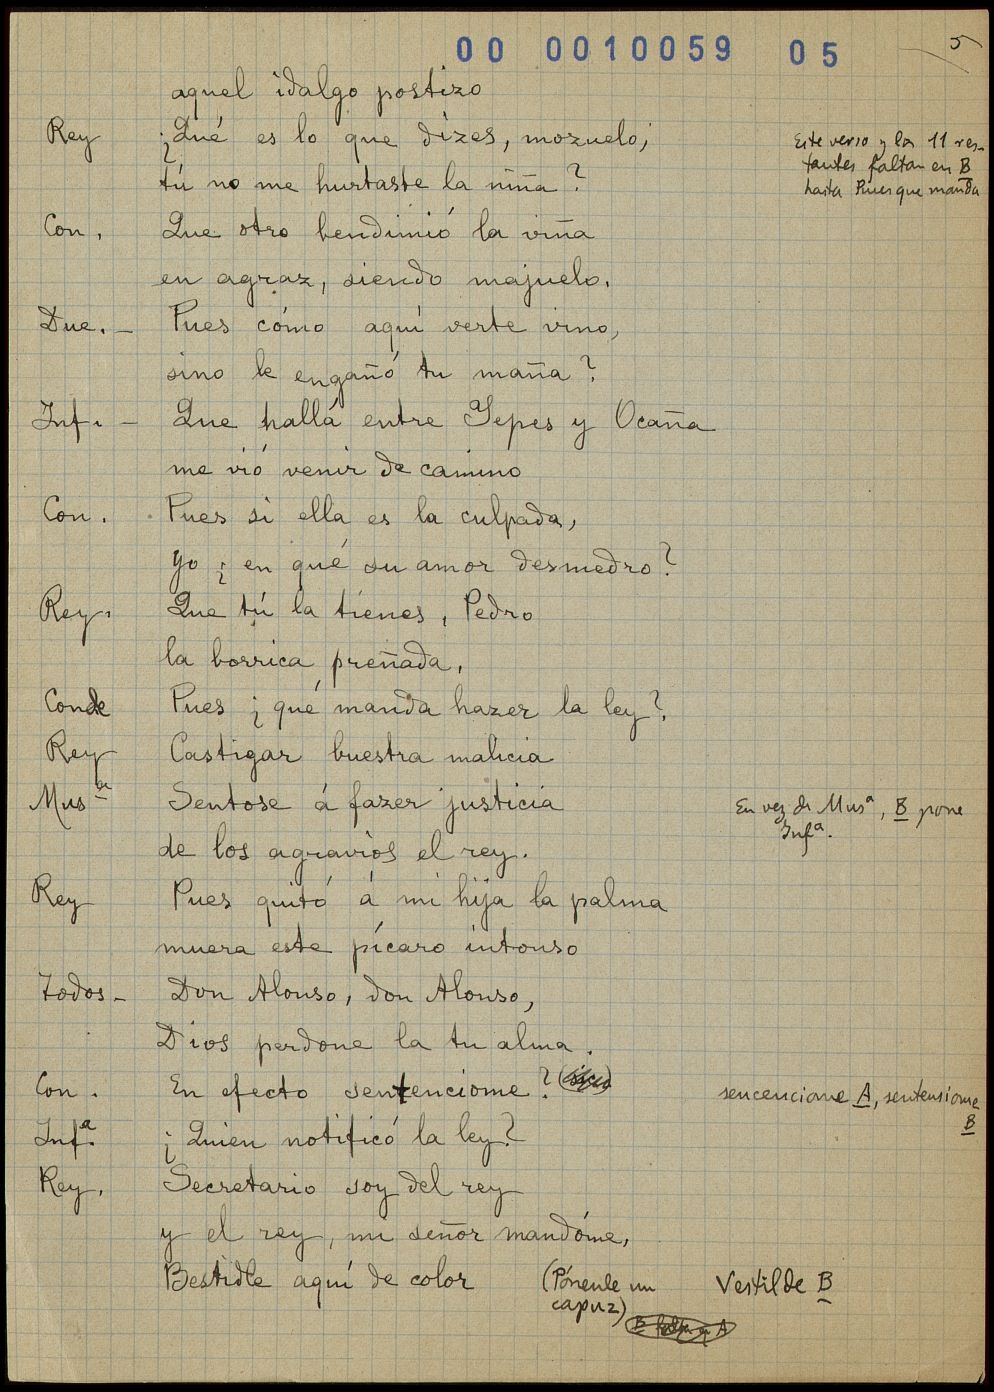 00 0010059 05
5
aquel idalgo postizo
Rey ¿Qué es lo que dizes, mozuelo;
tú no me hurtaste la niña?
Este verso y los 11 res-
tantes faltan en B
hasta Pues que manda
Con. Que otro bendimió la viña
en agraz, siendo majuelo.
Due. – Pues cómo aquí verte vino,
sino le engañó tu maña?
Inf. – Que hallá entre Yepes y Ocaña
me vió venir de camino
Con. Pues si ella es la culpada,
yo ¿ en qué su amor desmedro?
Rey. Que tú la tienes, Pedro
la borrica preñada.
Conde Pues ¿ qué manda hazer la ley?
Rey Castigar buestra malicia
Musª Sentose á fazer justicia
En vez de Musª, B pone
Infª.
de los agravios el rey.
Rey Pues quitó á mi hija la palma
muera este pícaro intonso
Todos – Don Alonso, don Alonso,
Dios perdone la tu alma.
Con. En efecto sentenciome? (sic)
sencenciome A, sentensiome
B
Infª. ¿Quien notificó la ley?
Rey. Secretario soy del rey
y el rey, mi señor mandóme,
Bestidle aquí de color (Pónenle un
capuz)
Vestilde B
B falta en A